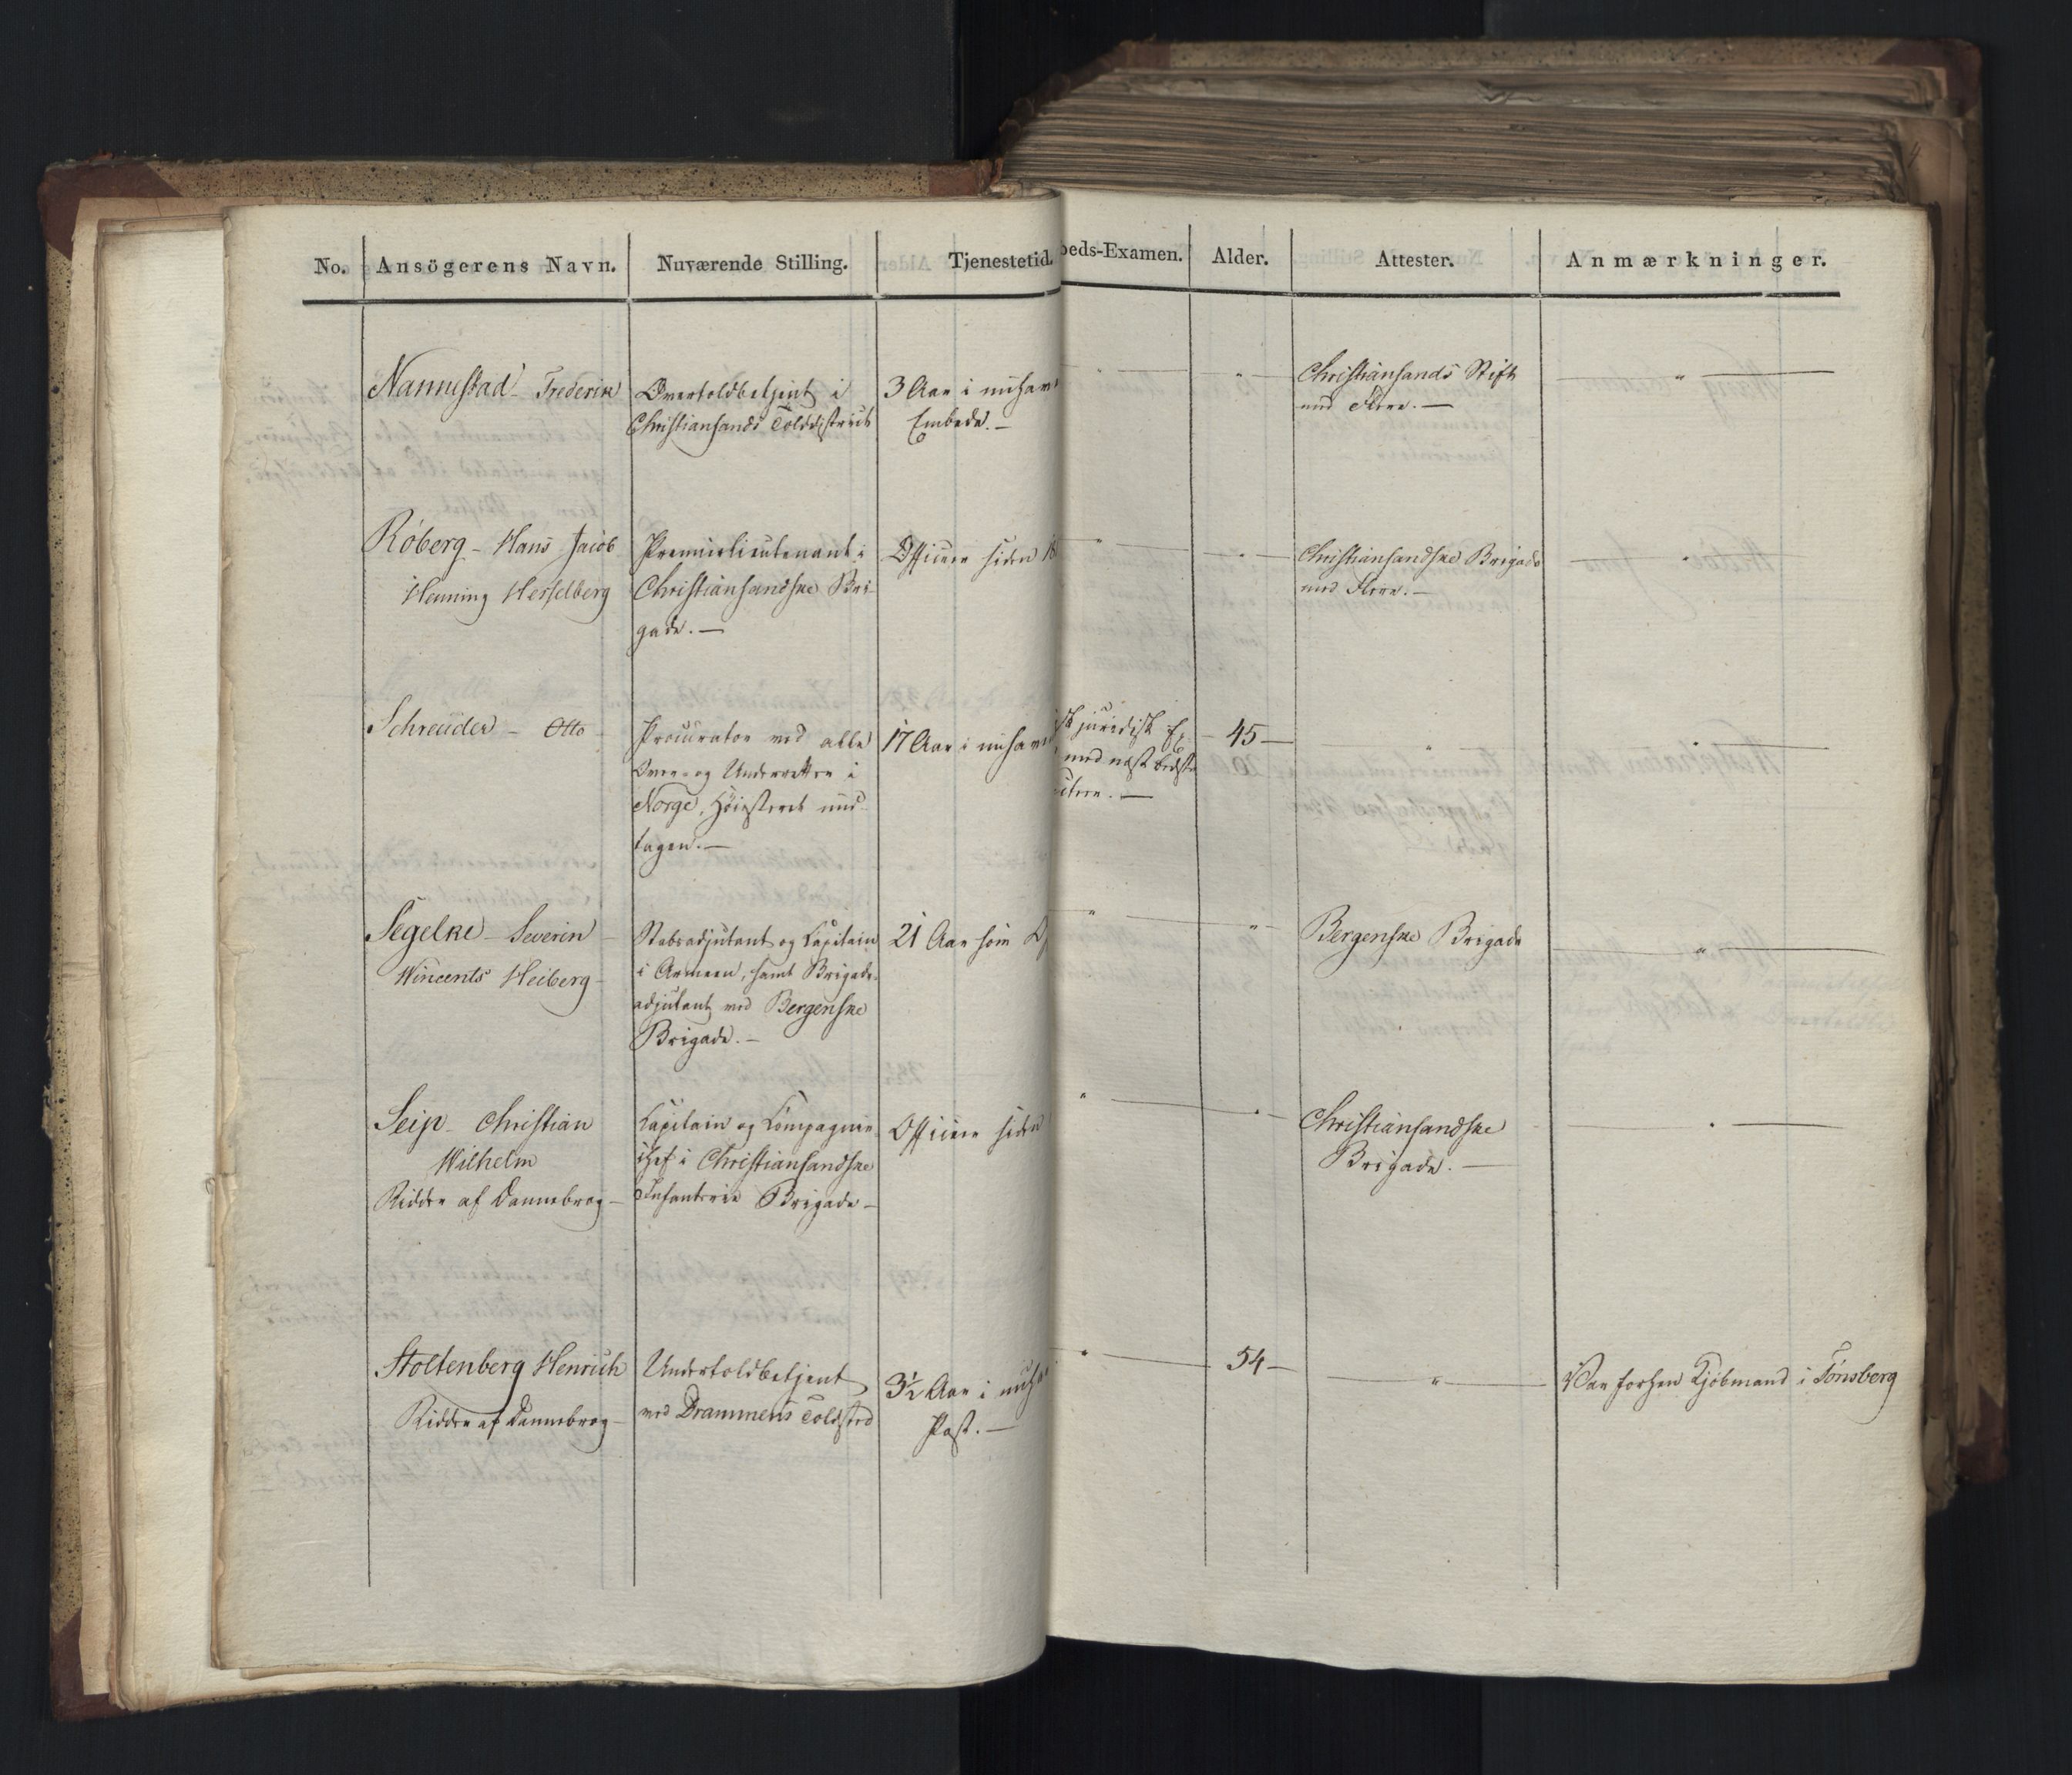 No. Ansögerens Navn. Nuværende Stilling. Tjenestetid. beds-Examen. Alder. Attester. Anmærkninger.
Nannestad - Frederik
Overtoldbetjent i
Christiansands Tolddistrict
3 Aar i nuhav
Embede. -
" "
Christiansands Stift
med Flere. -
"
Röberg - Hans Jacob
Henning Hesselberg
Premierlieutenant i
Christiansandske Bri-
gade. -
Officier siden 18
" "
Christiansandske Brigade
med Flere. -
"
Schreuder - Otto
Procurator ved alle
Over- og Underretter i
Norge, Höiesteret und-
tagen. -
17 Aar i nuhav
sk juridisk Ex
med næst bedste
- 45 -
" "
Segelke - Severin
Wincents Heiberg -
Stabsadjutant og Capitain
i Armeen, samt Brigade-
adjutant ved Bergenske
Brigade. -
21 Aar som
" "
Bergenske Brigade
"
Seip - Christian
Wilhelm
Ridder af Dannebrog -
Capitain og Compagnie-
chef i Christiansandske
Infanterie Brigade -
Officier siden
" "
Christiansandske
Brigade. -
"
Stoltenberg Henrich
Ridder af Dannebrog -
Undertoldbetjent
ved Drammens Toldsted
3½ Aar i nuha
Post. -
"
54 -
"
Var forhen Kjöbmand i Tönsberg